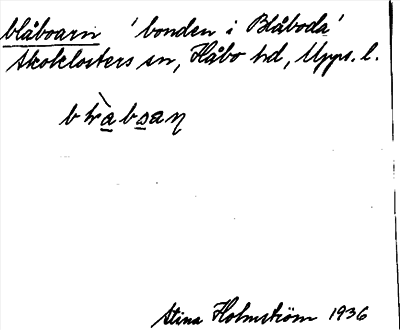 blåboarn 'bonden i Blåboda'
Skoklosters sn, Håbo hd, Upps. l.
Stina Holmström 1936